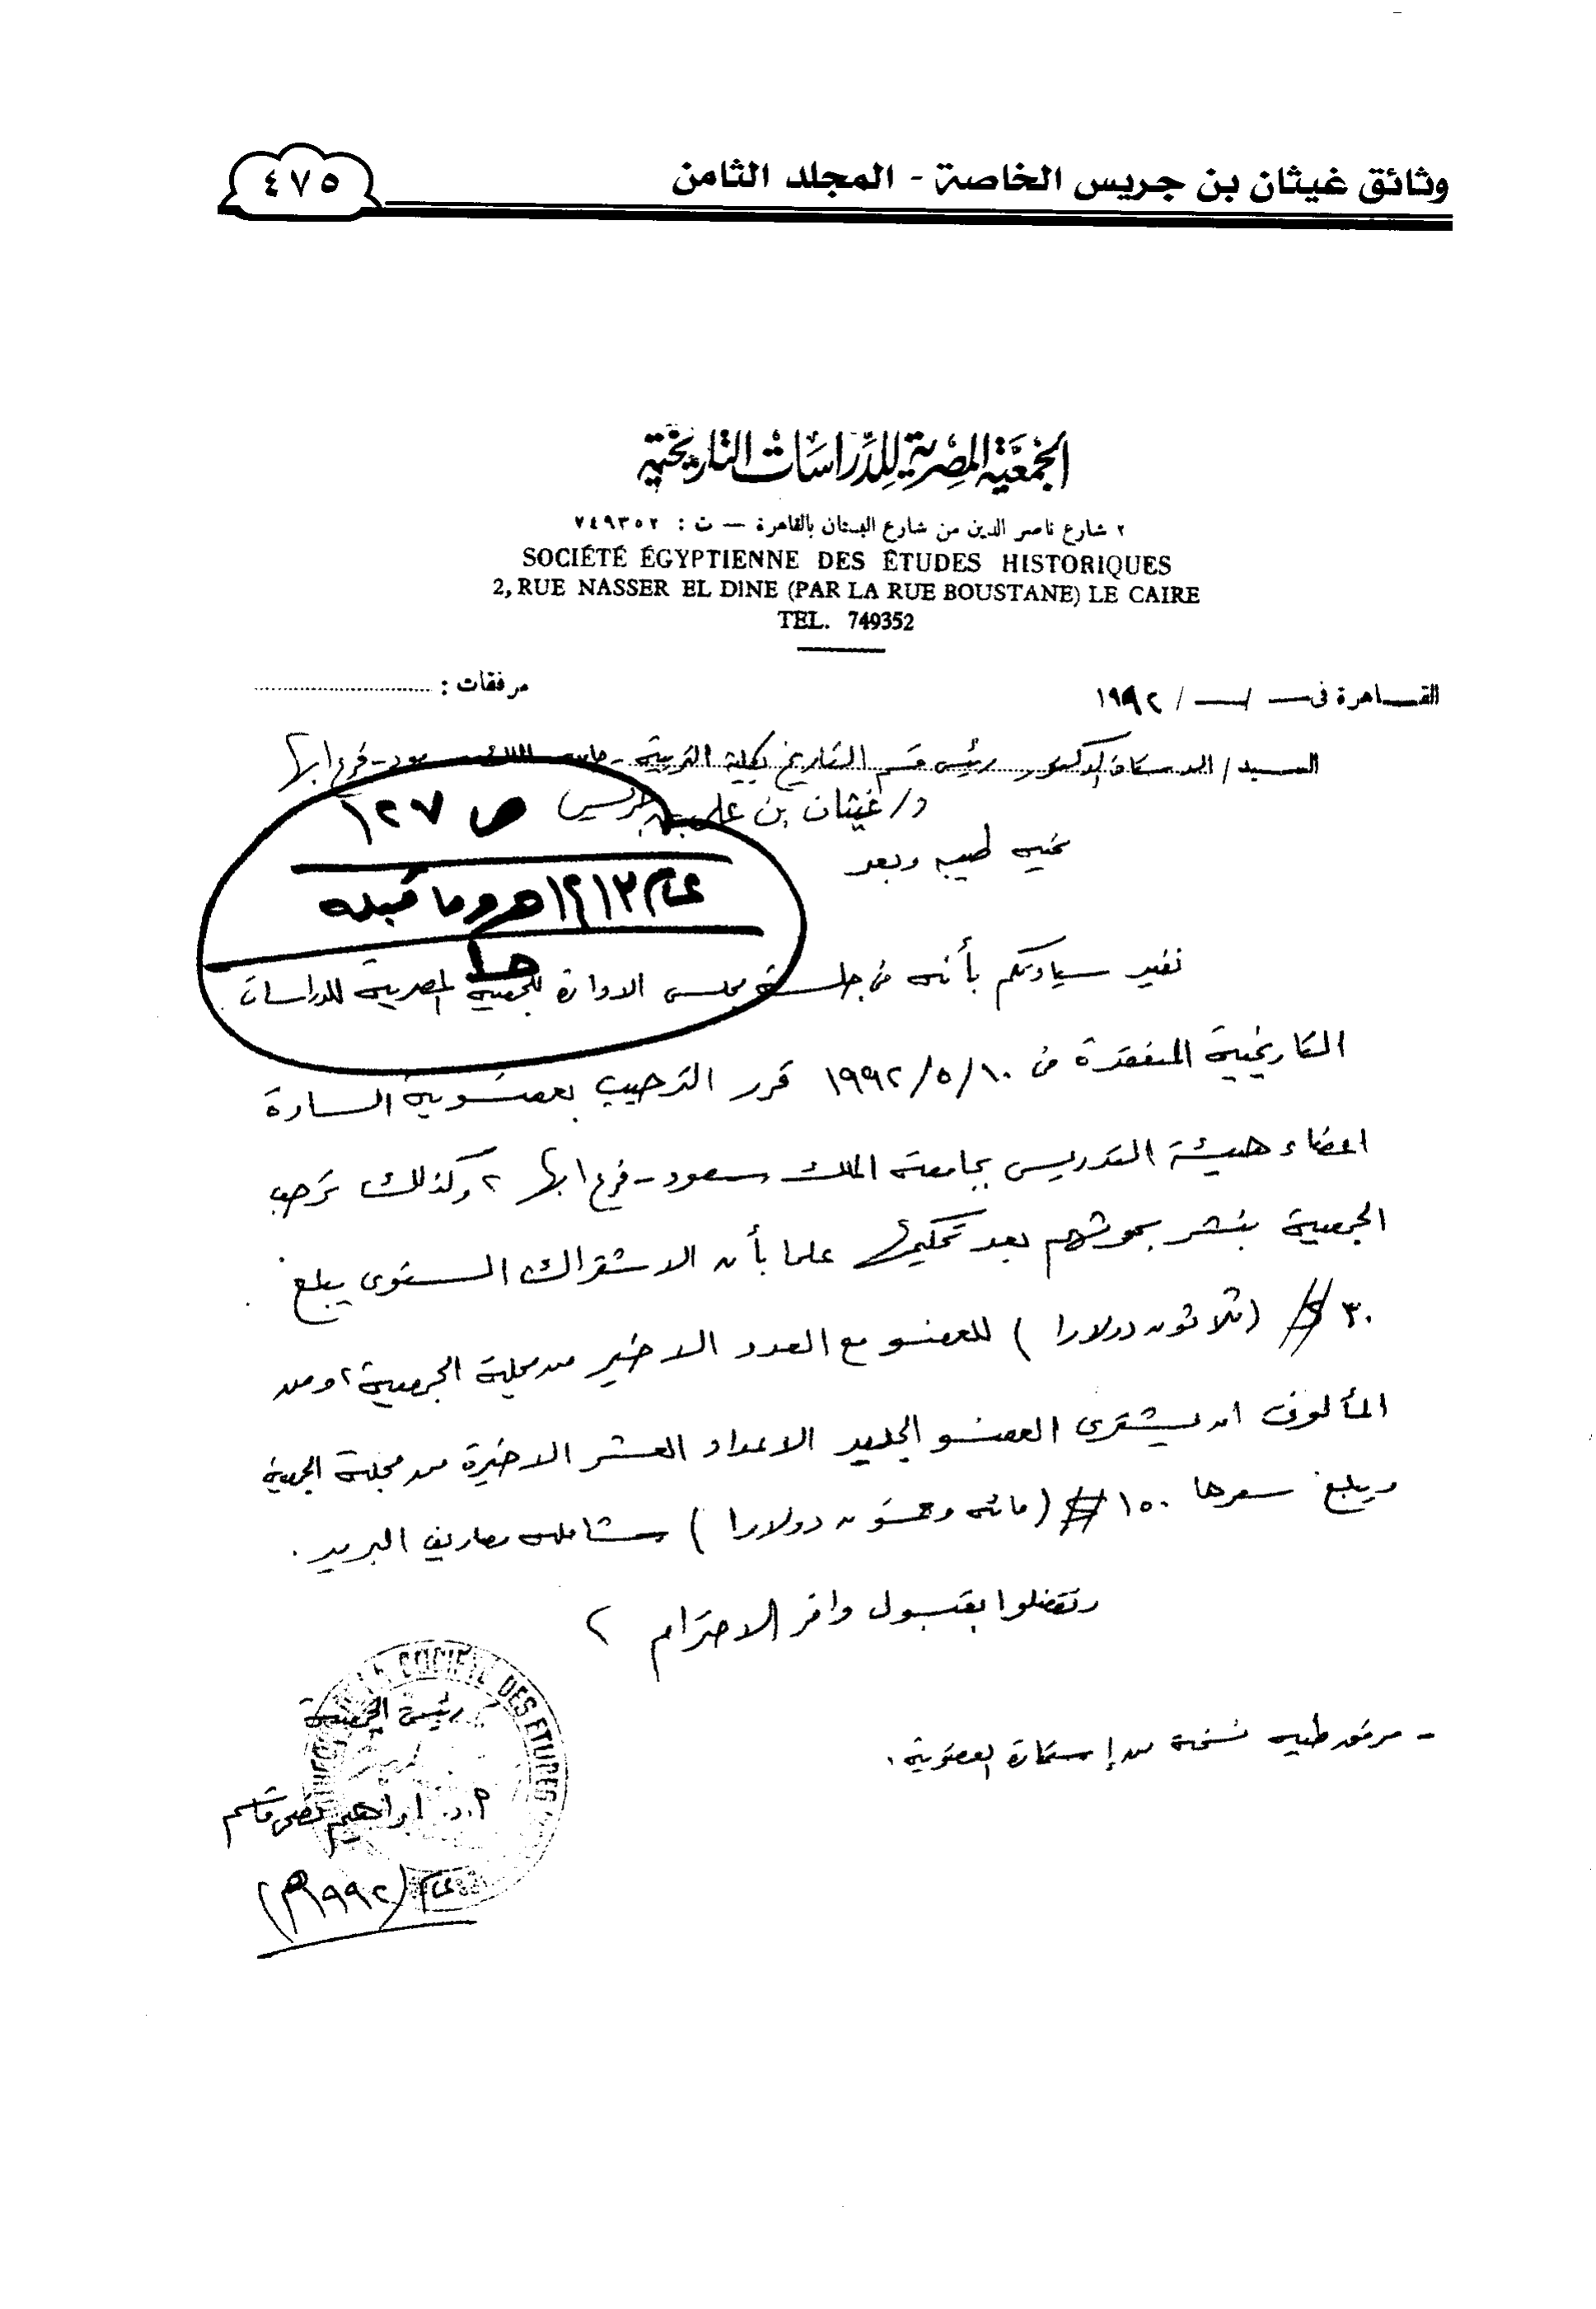 وثائق غيثان بن جريس الخاصة - المجلد الثامن
٤٧٥
الجمعية المصرية للدراسات التاريخية
٢ شارع ناصر الدين من شارع البستان بالقاهرة — ت : ٧٤٩٣٥٢
SOCIÉTÉ ÉGYPTIENNE DES ÉTUDES HISTORIQUES
2, RUE NASSER EL DINE (PAR LA RUE BOUSTANE) LE CAIRE
TEL. 749352
القاهرة فى — / — / ١٩٩٢
مرفقات :
السيد / الاستاذ الدكتور رئيس قسم التاريخ بكلية التربية - جامعة الملك سعود - فرع ابها
د/ غيثان بن على بن جريس
ص ١٢٧
تحية طيبة وبعد
عام ١٤١٣هـ وما قبله
نفيد سيادتكم بأنه فى جلسة مجلس الادارة للجمعية المصرية للدراسات
التاريخية المنعقدة فى ١٠/٥/١٩٩٢ قرر الترحيب بعضوية السادة
اعضاء هيئة التدريس بجامعة الملك سعود - فرع ابها ، وكذلك ترحب
الجمعية بنشر بحوثهم بعد تحكيمها علما بأن الاشتراك السنوى يبلغ
٣٠ $ (ثلاثون دولارا) للعضو مع العدد الاخير من مجلة الجمعية ، ومن
المألوف ان يشترى العضو الجديد الاعداد العشر الاخيرة من مجلة الجمعية
ويبلغ سعرها ١٥٠ $ (مائه وخمسون دولارا) شامله مصاريف البريد .
وتفضلوا بقبول وافر الاحترام ،
رئيس الجمعية
- مرفق طيه نسخة من إستمارة العضوية .
DES ETUDES
أ.د. ابراهيم نصحى قاسم
عام (١٩٩٢م)